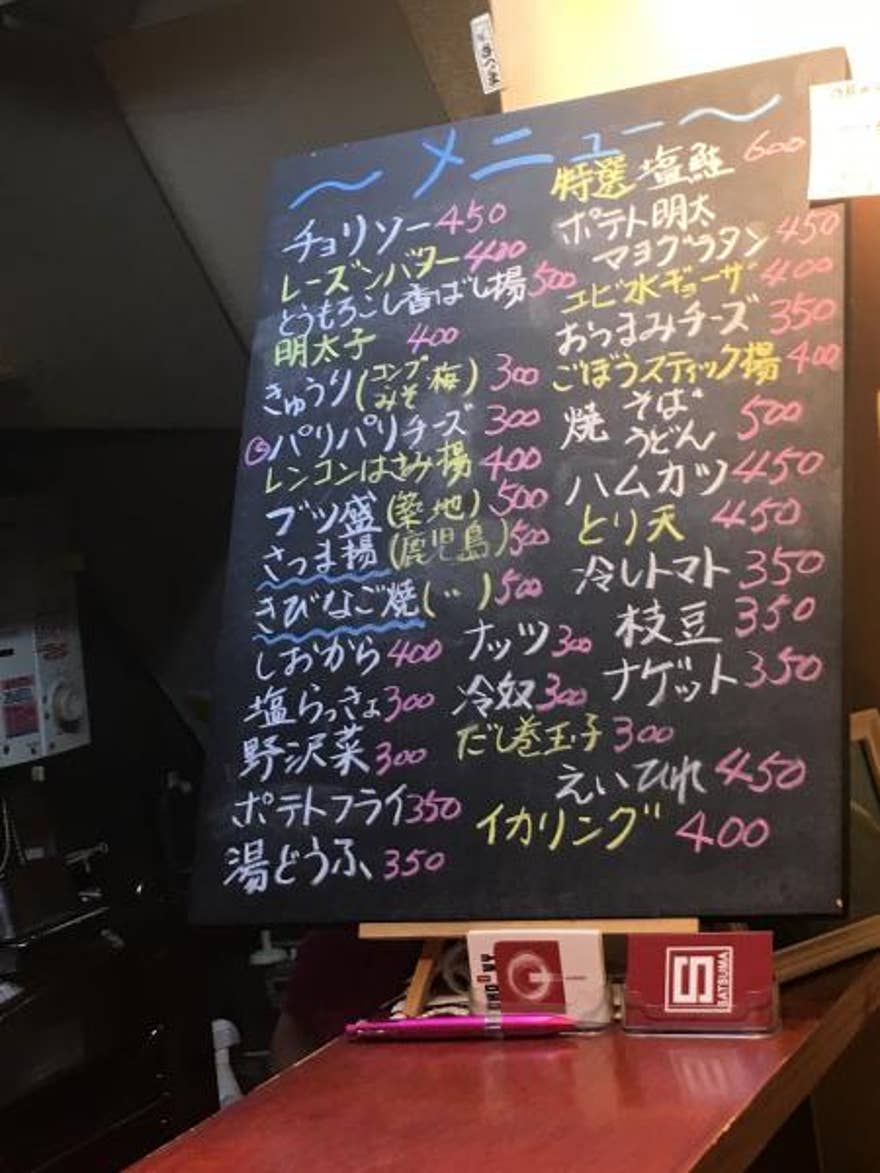 ~メニュー~
チョリソー 450
レーズンバター 400
とうもろこし香ばし揚 500
明太子 400
きゅうり(コンブ みそ 梅) 300
パリパリチーズ 300
レンコンはさみ揚 400
ブツ盛(築地) 500
さつま揚(鹿児島) 500
きびなご焼(〃) 500
しおから 400
塩らっきょ 300
野沢菜 300
ポテトフライ 350
湯どうふ 350
ナッツ 300
冷奴 300
だし巻玉子 300
特選 塩鮭 600
ポテト明太
マヨグラタン 450
エビ水ギョーザ 400
おつまみチーズ 350
ごぼうスティック揚 400
焼 そば うどん 500
ハムカツ 450
とり天 450
冷しトマト 350
枝豆 350
ナゲット 350
えいひれ 450
イカリング 400
SATSUMA